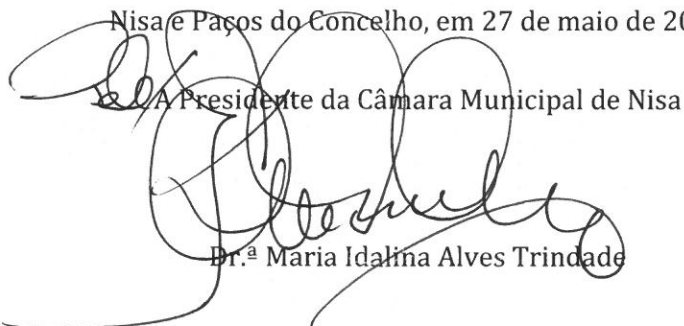 Nisa e Paços do Concelho, em 27 de maio de 20
A Presidente da Câmara Municipal de Nisa
Dr.ª Maria Idalina Alves Trindade